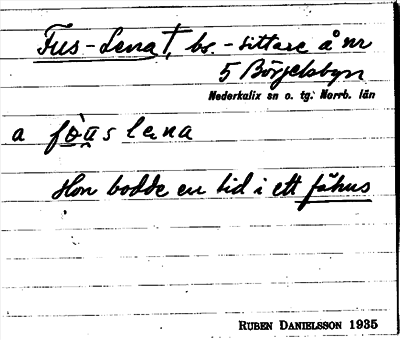 Fus-Lena †, bs.-sittare å nr
5 Börjelsbyn
Nederkalix sn o. tg: Norrb. län
a fo᷆u̯s lena
Hon bodde en tid i ett fähus
RUBEN DANIELSSON 1935